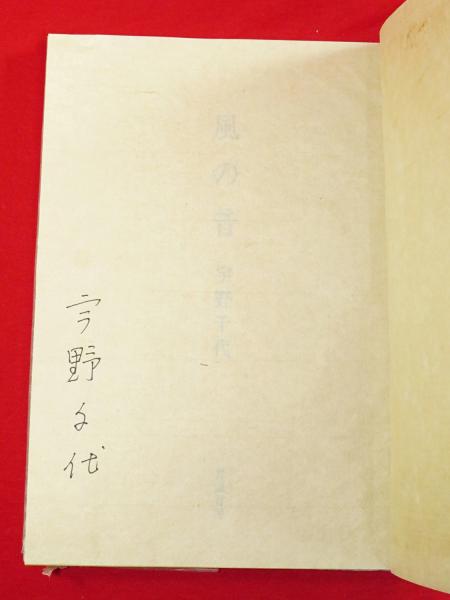 風の音
宇野千代
宇野千代